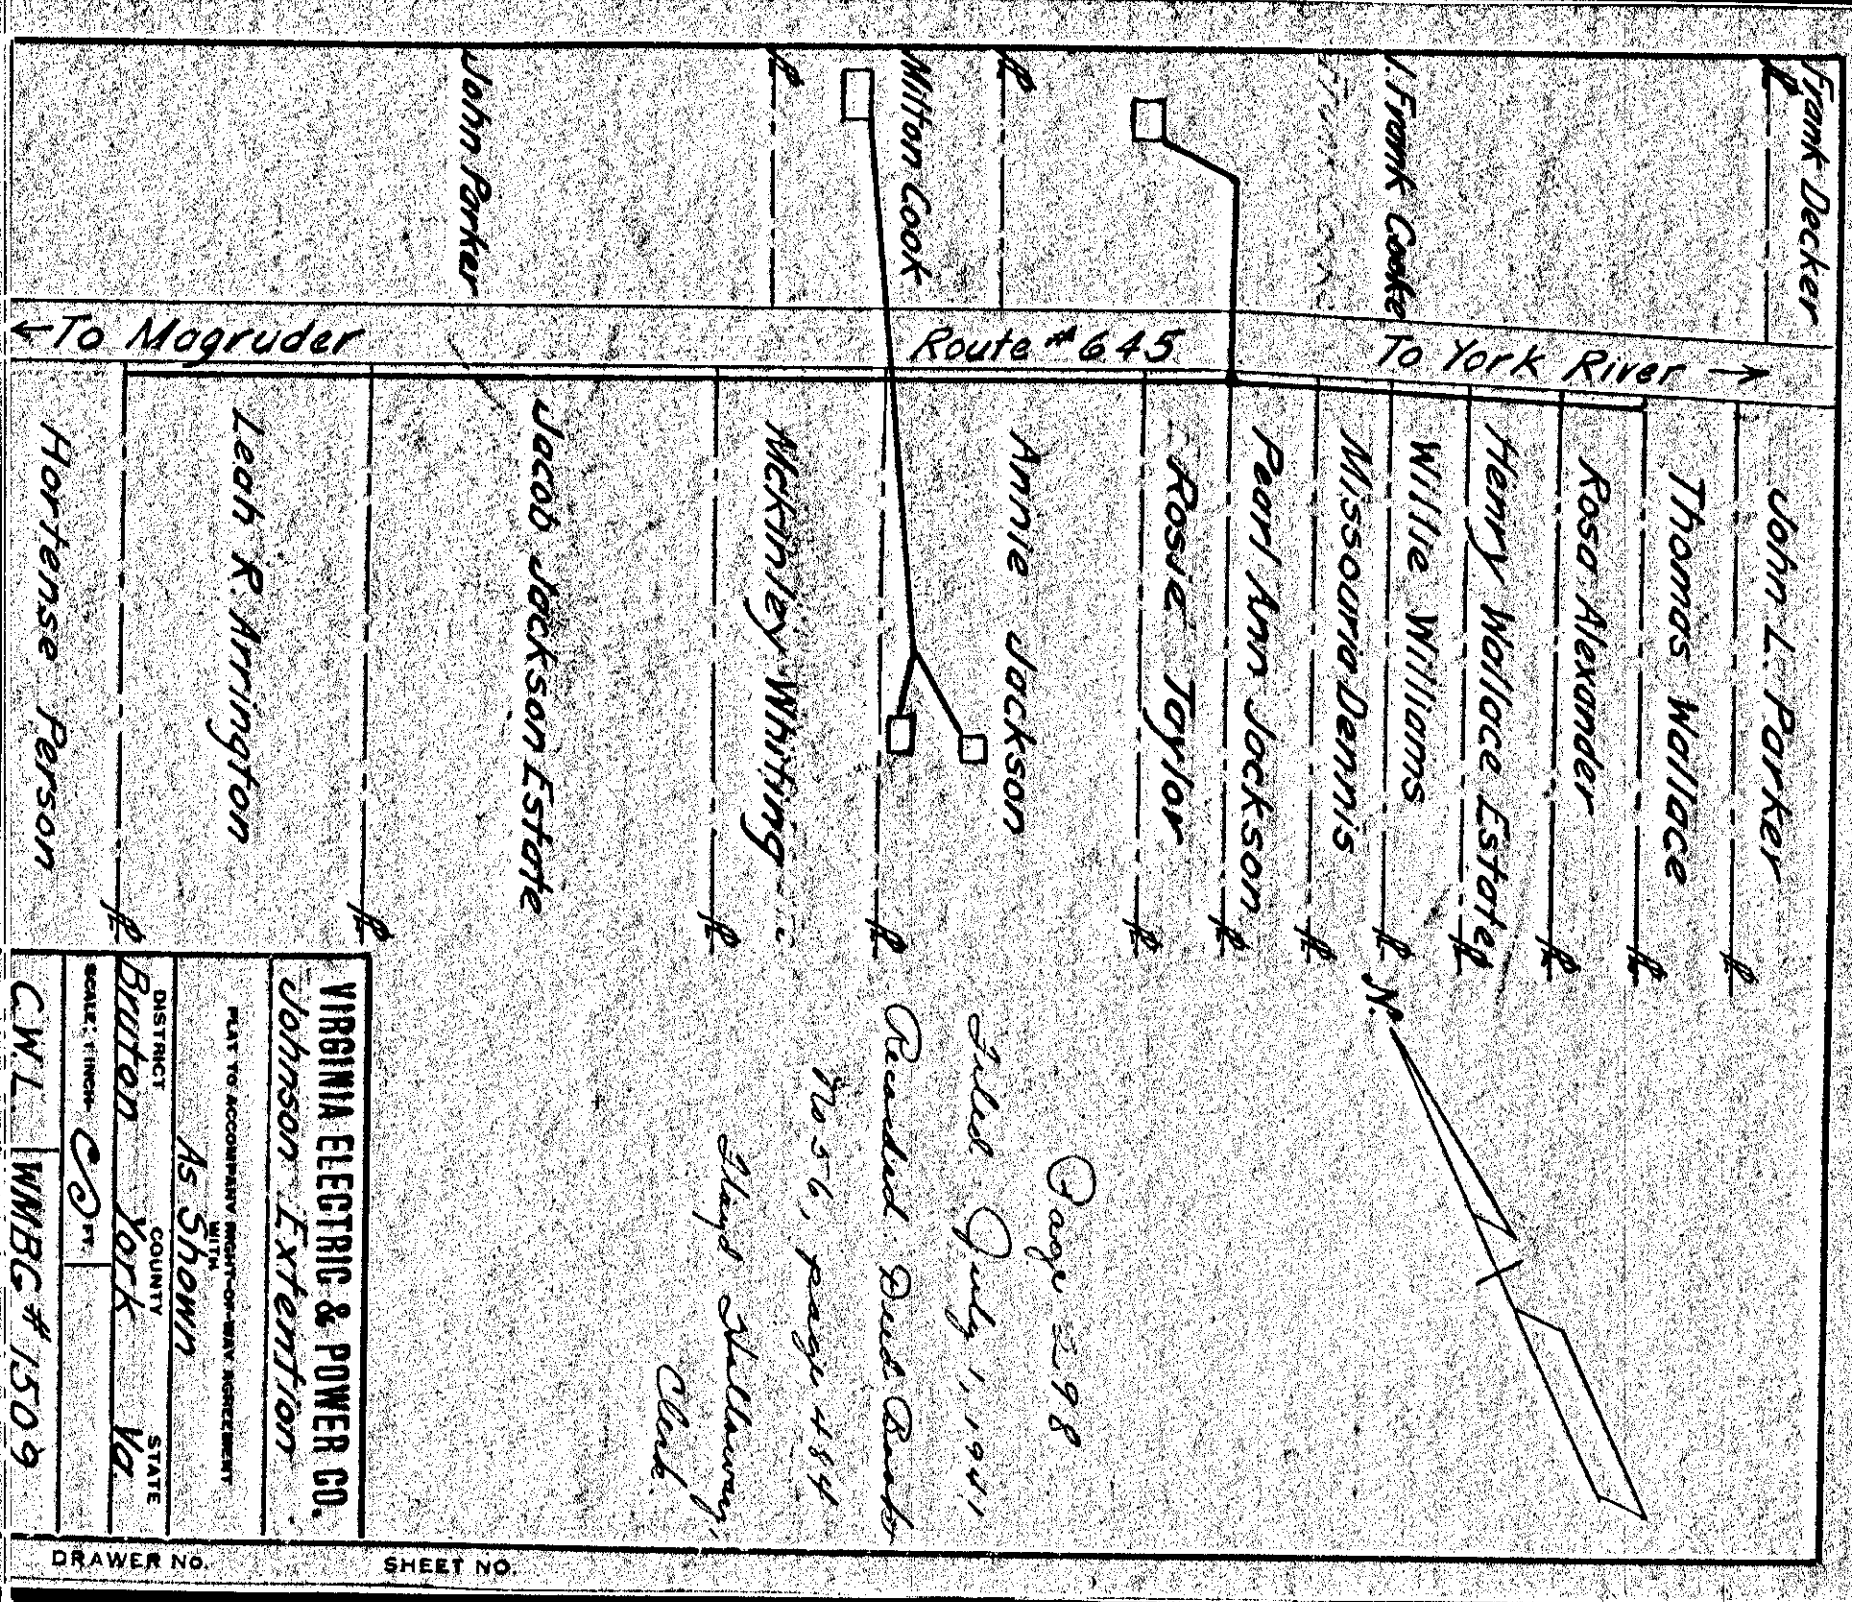 Frank Decker
J. Frank Cooke
Milton Cook
John Parker
← To Magruder
Route # 645
To York River →
John L. Parker
Thomas Wallace
Rosa Alexander
Henry Wallace Estate
Willie Williams
Missouria Dennis
Pearl Ann Jackson
Rosie Taylor
Annie Jackson
McKinley Whiting
Jacob Jackson Estate
Leah R. Arrington
Hortense Person
N.
Page 298
Filed July 1, 1941
Recorded Deed Book
No 56, page 484
Floyd Holloway,
Clerk.
VIRGINIA ELECTRIC & POWER CO.
Johnson Extention
PLAT TO ACCOMPANY RIGHT-OF-WAY AGREEMENT
WITH
As Shown
DISTRICT COUNTY STATE
Bruton York Va.
SCALE: 1 INCH= FT.
C.W.L. WMBG # 1509
DRAWER NO. SHEET NO.